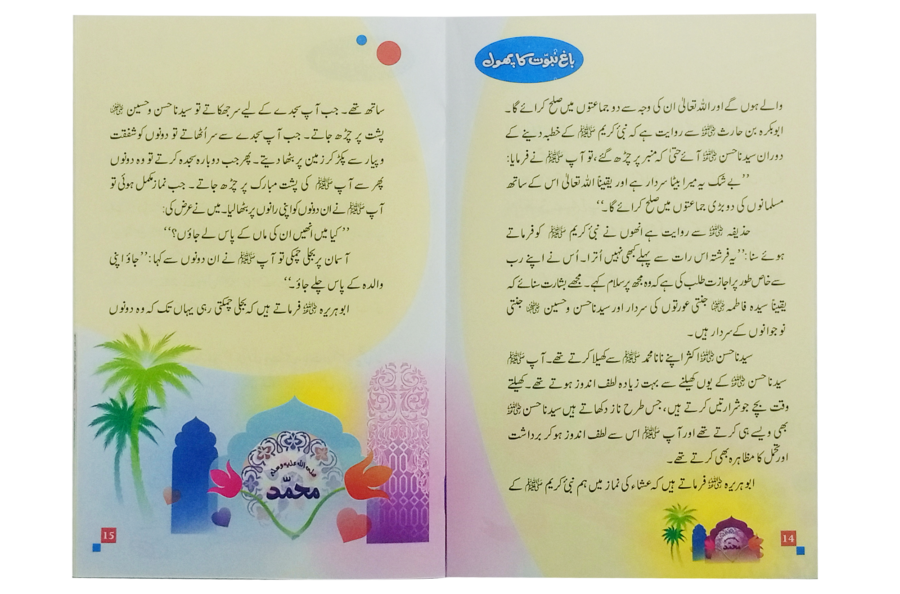 باغِ نبوّت کا پھول
والے ہوں گے اور اللہ تعالیٰ ان کی وجہ سے دو جماعتوں میں صلح کرائے گا۔
ابوبکرہ بن حارث رضی اللہ عنہ سے روایت ہے کہ نبی کریم ﷺ کے خطبہ دینے کے
دوران سیدنا حسن رضی اللہ عنہ آئے حتیٰ کہ منبر پر چڑھ گئے، تو آپ ﷺ نے فرمایا:
’’بے شک یہ میرا بیٹا سردار ہے اور یقیناً اللہ تعالیٰ اس کے ساتھ
مسلمانوں کی دو بڑی جماعتوں میں صلح کرائے گا۔‘‘
حذیفہ رضی اللہ عنہ سے روایت ہے انھوں نے نبی کریم ﷺ کو فرماتے
ہوئے سنا: ’’یہ فرشتہ اس رات سے پہلے کبھی نہیں اُترا۔ اُس نے اپنے رب
سے خاص طور پر اجازت طلب کی ہے کہ وہ مجھ پر سلام کہے۔ مجھے بشارت سنائے کہ
یقیناً سیدہ فاطمہ رضی اللہ عنہا جنتی عورتوں کی سردار اور سیدنا حسن و حسین رضی اللہ عنہما جنتی
نوجوانوں کے سردار ہیں۔
سیدنا حسن رضی اللہ عنہ اکثر اپنے نانا محمد ﷺ سے کھیلا کرتے تھے۔ آپ ﷺ
سیدنا حسن رضی اللہ عنہ کے یوں کھیلنے سے بہت زیادہ لطف اندوز ہوتے تھے۔ کھیلتے
وقت بچے جو شرارتیں کرتے ہیں، جس طرح ناز دکھاتے ہیں سیدنا حسن رضی اللہ عنہ
بھی ویسے ہی کرتے تھے اور آپ ﷺ اس سے لطف اندوز ہو کر برداشت
اور تحمل کا مظاہرہ بھی کرتے تھے۔
ابوہریرہ رضی اللہ عنہ فرماتے ہیں کہ عشاء کی نماز میں ہم نبی کریم ﷺ کے
محمد
14
ساتھ تھے۔ جب آپ سجدے کے لیے سر جھکاتے تو سیدنا حسن و حسین رضی اللہ عنہما
پشت پر چڑھ جاتے۔ جب آپ سجدے سے سر اُٹھاتے تو دونوں کو شفقت
و پیار سے پکڑ کر زمین پر بٹھا دیتے۔ پھر جب دوبارہ سجدہ کرتے تو وہ دونوں
پھر سے آپ ﷺ کی پشت مبارک پر چڑھ جاتے۔ جب نماز مکمل ہوئی تو
آپ ﷺ نے ان دونوں کو اپنی رانوں پر بٹھا لیا۔ میں نے عرض کی:
’’کیا میں انھیں ان کی ماں کے پاس لے جاؤں؟‘‘
آسمان پر بجلی چمکی تو آپ ﷺ نے ان دونوں سے کہا: ’’جاؤ اپنی
والدہ کے پاس چلے جاؤ۔‘‘
ابوہریرہ رضی اللہ عنہ فرماتے ہیں کہ بجلی چمکتی رہی یہاں تک کہ وہ دونوں
صلى الله عليه وسلم
محمّد
15